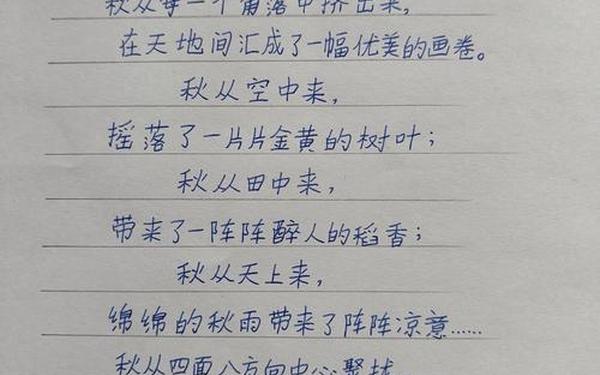 秋从每一个角落中挤出来，
在天地间汇成了一幅优美的画卷。
秋从空中来，
摇落了一片片金黄的树叶；
秋从田中来，
带来了一阵阵醉人的稻香；
秋从天上来，
绵绵的秋雨带来了阵阵凉意……
秋从四面八方向中心聚拢